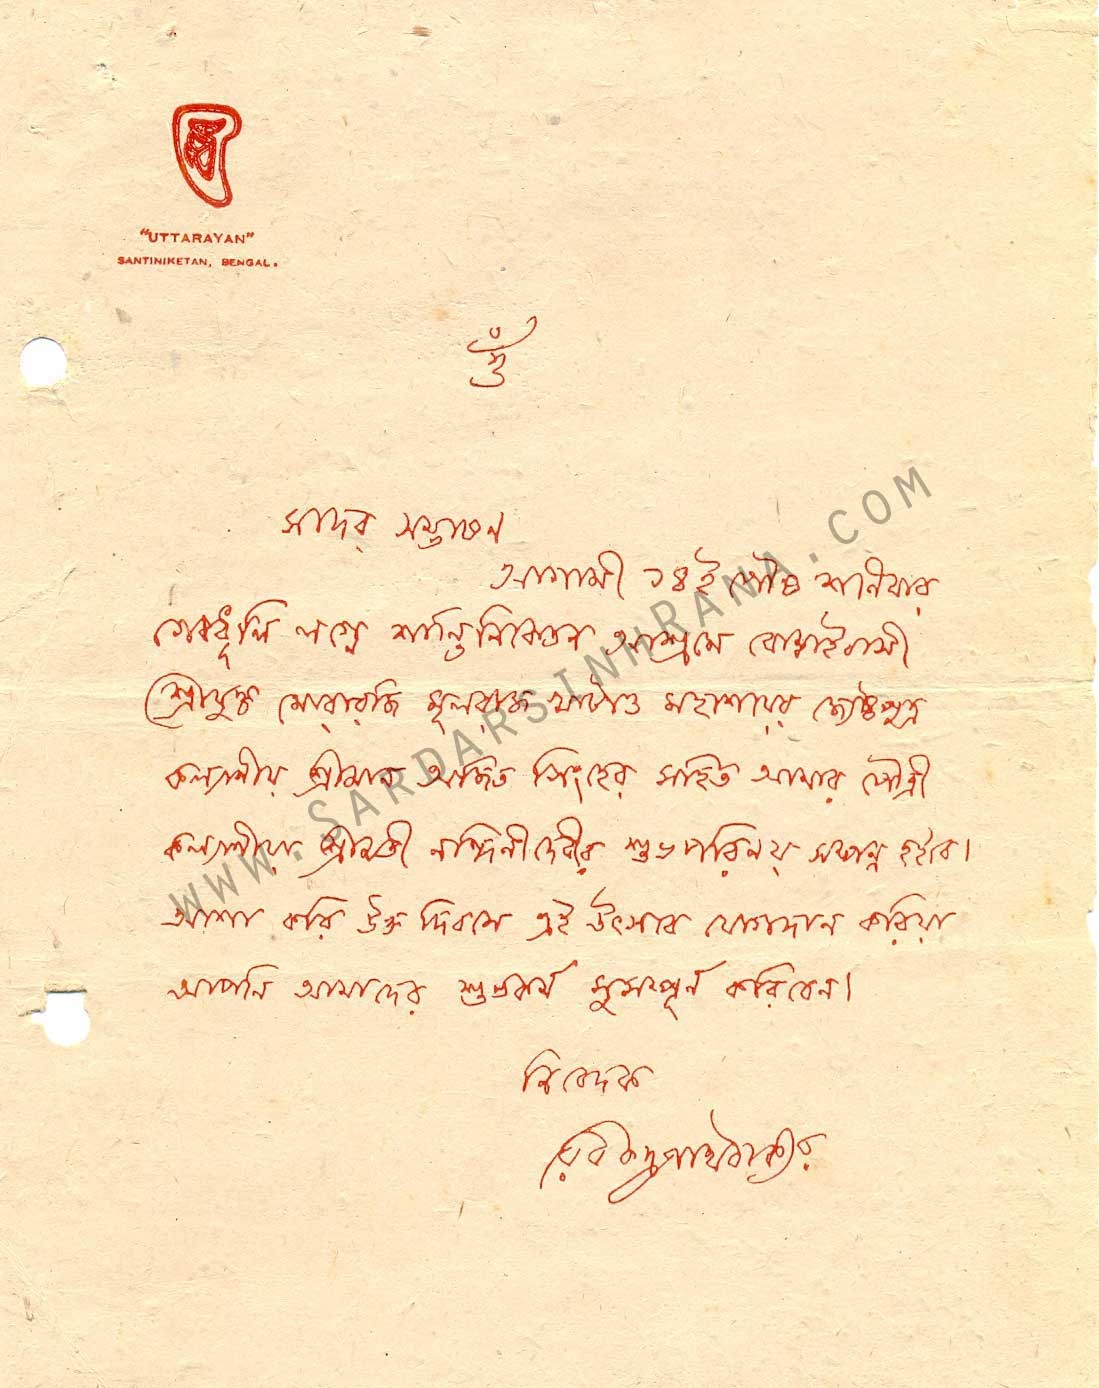 "UTTARAYAN"
SANTINIKETAN, BENGAL.
ওঁ
সাদর সম্ভাষণ
আগামী ১৪ই পৌষ শনিবার
গোধূলি লগ্নে শান্তিনিকেতন আশ্রমে বোম্বাইবাসী
শ্রীযুক্ত মোরারজি মূলরাজ খাটাও মহাশয়ের জ্যেষ্ঠপুত্র
কল্যাণীয় শ্রীমান অজিত সিংহের সহিত আমার পৌত্রী
কল্যাণীয়া শ্রীমতী নন্দিনীদেবীর শুভপরিণয় সম্পন্ন হইবে।
আশা করি উক্ত দিবসে এই উৎসবে যোগদান করিয়া
আপনি আমাদের শুভকার্য সুসম্পূর্ণ করিবেন।
নিবেদক
রবীন্দ্রনাথ ঠাকুর
WWW.SARDARSINHRANA.COM